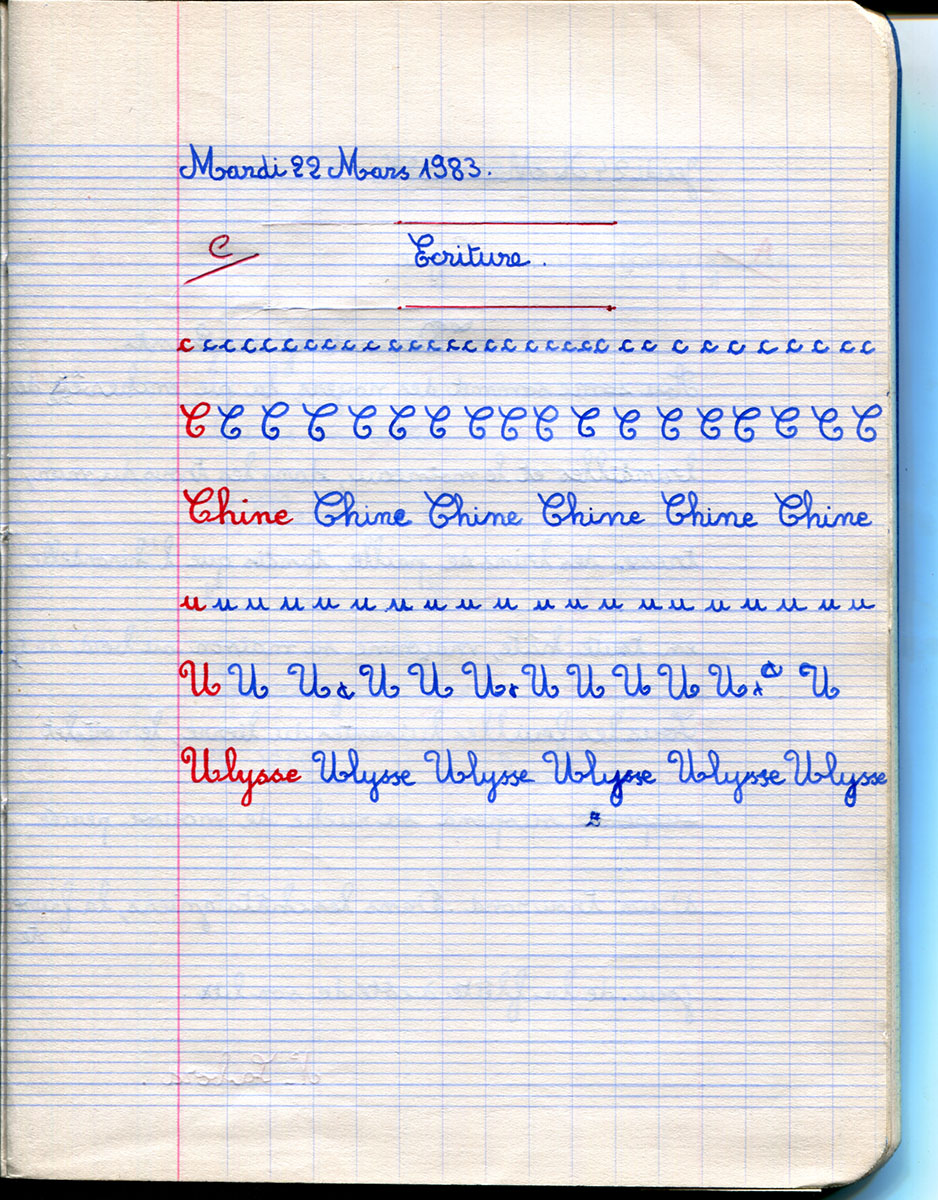 Mardi 22 Mars 1983.
C
Ecriture.
c c c c c c c c c c c c c c c c c c c c c c c c c c c c c c c c
C C C C C C C C C C C C C C C C C C
Chine Chine Chine Chine Chine Chine
u u u u u u u u u u u u u u u u u u u u
U U U U U U U U U U U U
Ulysse Ulysse Ulysse Ulysse Ulysse Ulysse